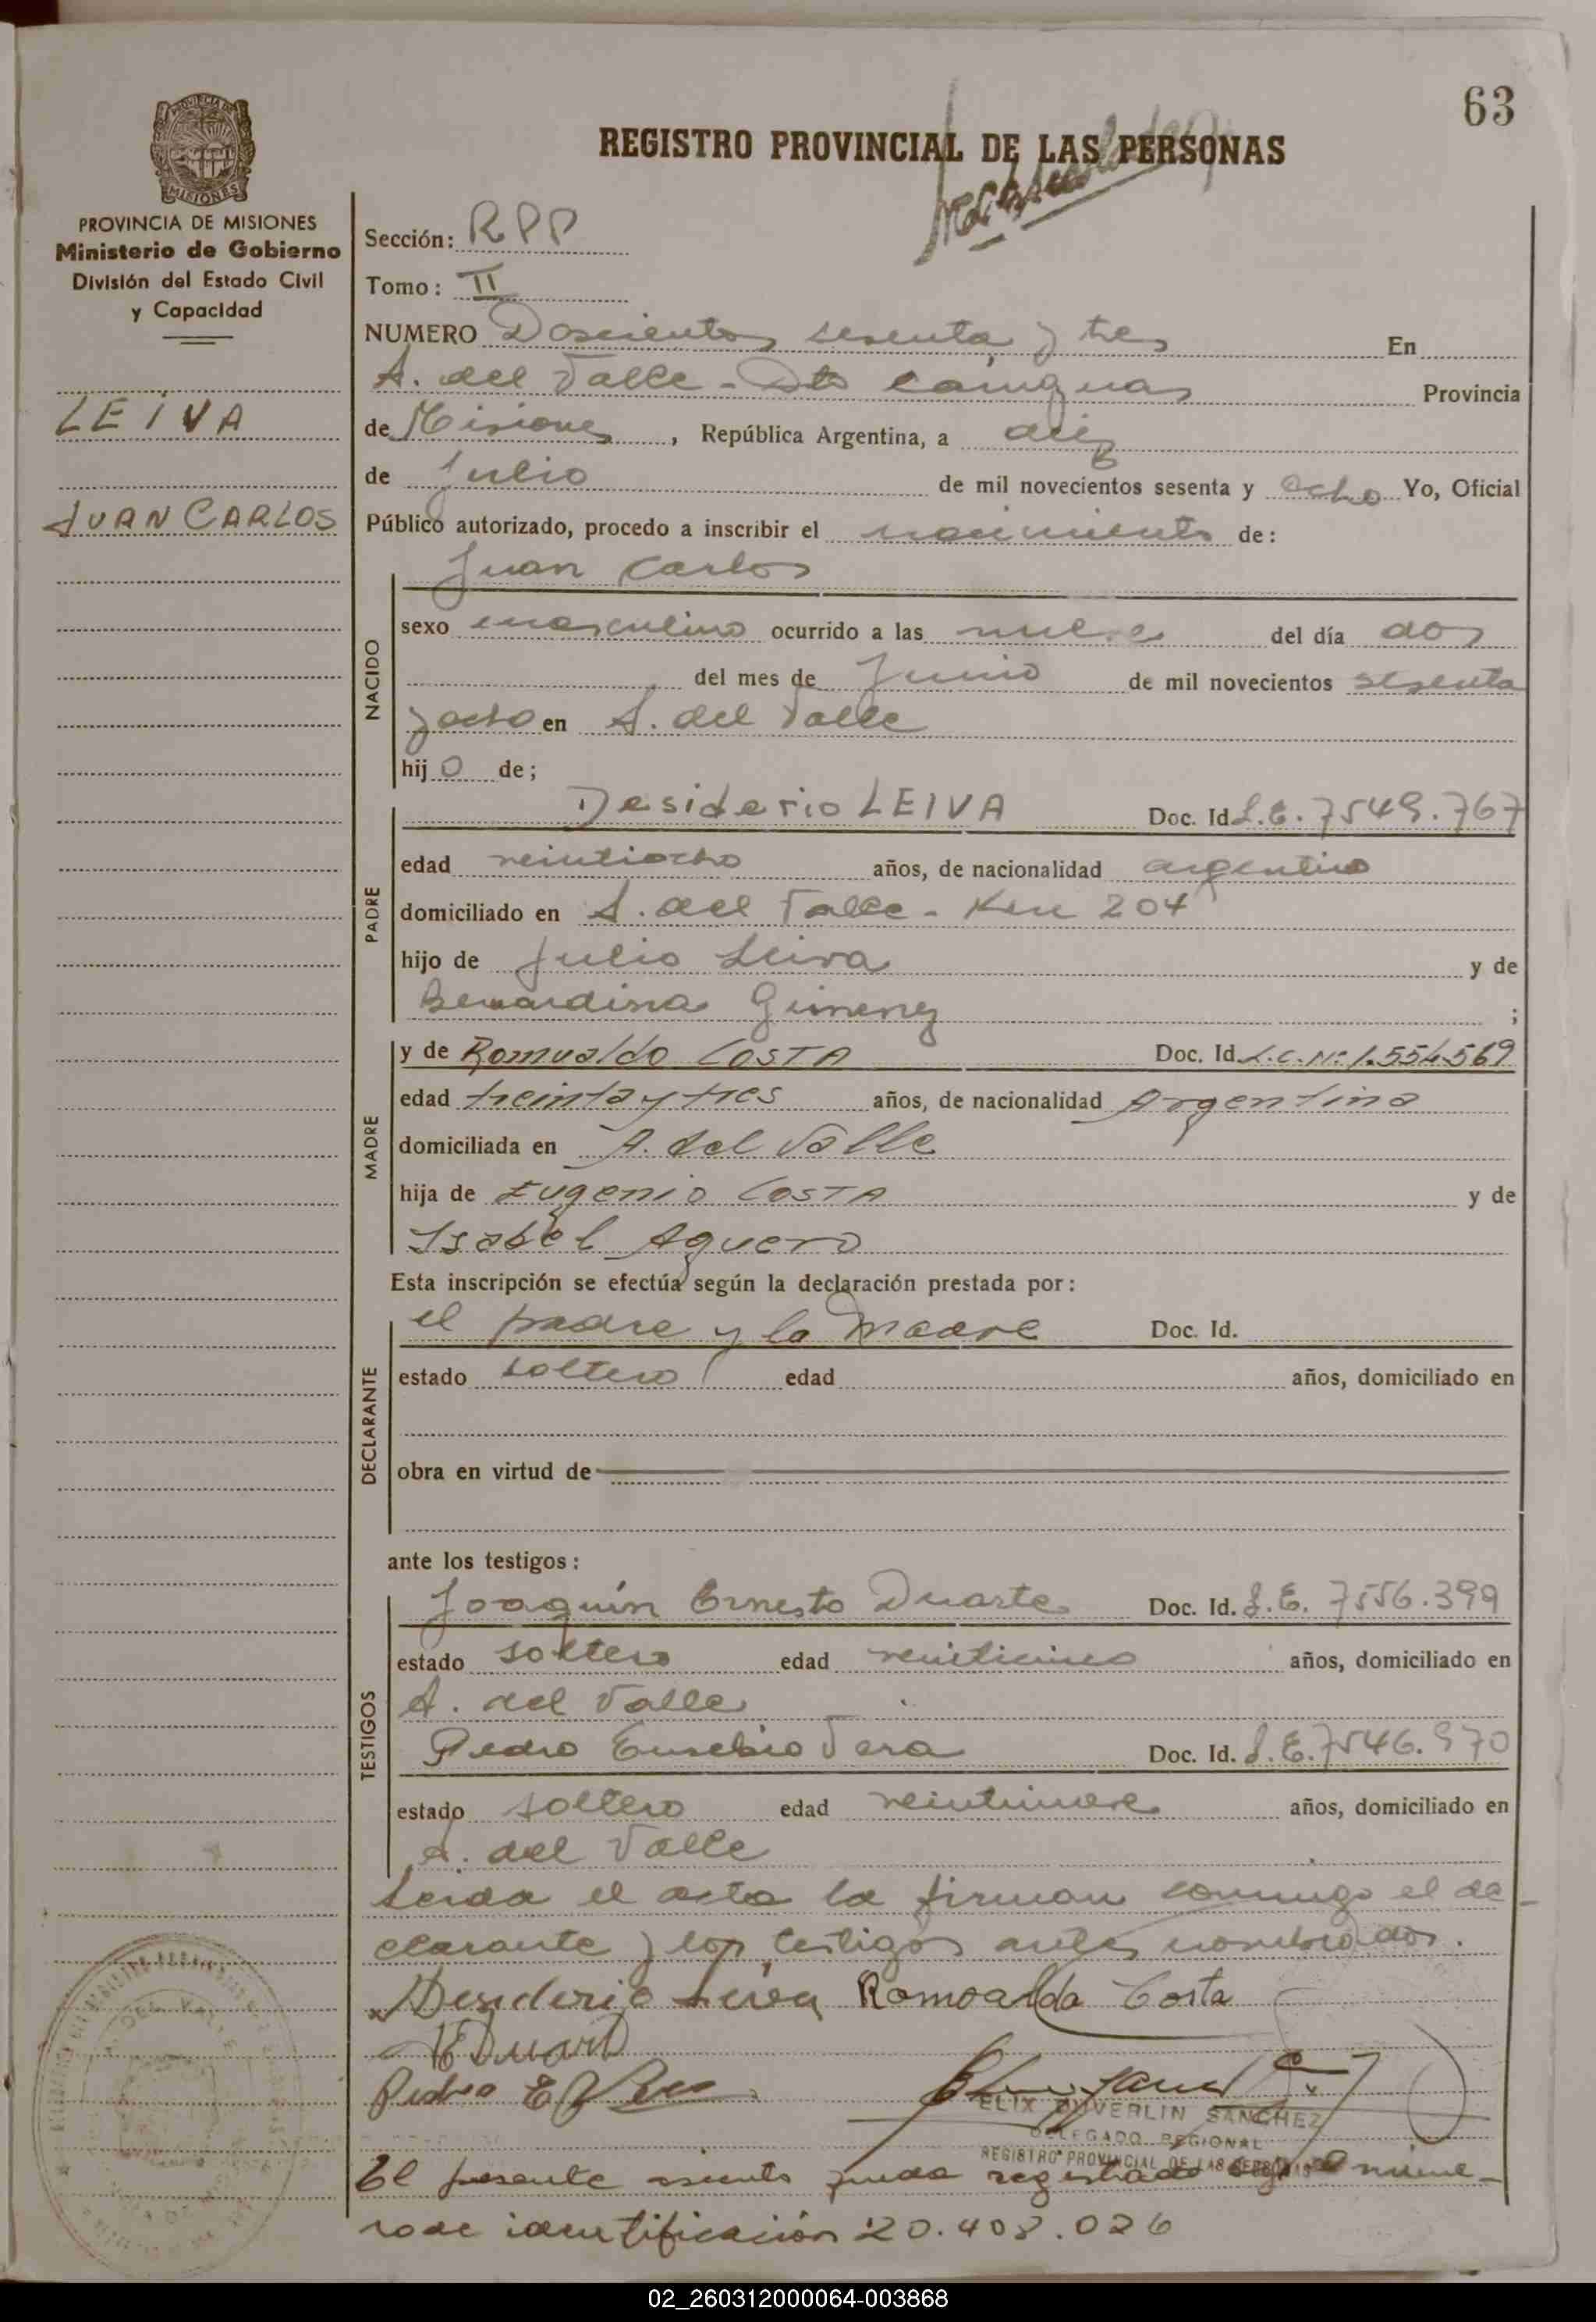 63
REGISTRO PROVINCIAL DE LAS PERSONAS
PROVINCIA DE MISIONES
MISIONES
PROVINCIA DE MISIONES
Ministerio de Gobierno
División del Estado Civil
y Capacidad
LEIVA
JUAN CARLOS
Sección: RPP
Tomo: II
NUMERO Doscientos sesenta y tres En
A. del Valle - Dto Cainguas Provincia
de Misiones, República Argentina, a diez
de Julio de mil novecientos sesenta y ocho Yo, Oficial
Público autorizado, procedo a inscribir el nacimiento de:
Juan Carlos
NACIDO
sexo masculino ocurrido a las nueve del día dos
del mes de Junio de mil novecientos sesenta
y ocho en A. del Valle
hijo de;
PADRE
Desiderio LEIVA Doc. Id L.E. 7549.767
edad veintiocho años, de nacionalidad argentino
domiciliado en A. del Valle - Km 204
hijo de Julio Leiva y de
Bernardina Gimenez ;
MADRE
y de Romualdo COSTA Doc. Id L.C. Nº 1.554.569
edad treinta y tres años, de nacionalidad Argentina
domiciliada en A. del Valle
hija de Eugenio COSTA y de
Isabel Aguero
Esta inscripción se efectúa según la declaración prestada por:
DECLARANTE
el padre y la Madre Doc. Id.
estado soltero edad años, domiciliado en
obra en virtud de
ante los testigos:
TESTIGOS
Joaquín Ernesto Duarte Doc. Id. L.E. 7556.399
estado soltero edad veinticinco años, domiciliado en
A. del Valle
Pedro Eusebio Vera Doc. Id. L.E. 7546.970
estado soltero edad veintinueve años, domiciliado en
A. del Valle
Leida el acta la firman conmigo el de-
clarante y los testigos antes nombrados.
Desiderio Leiva Romoalda Costa
EDuarte
Pedro E Vera
ELIX DUVERLIN SANCHEZ
DELEGADO REGIONAL
REGISTRO PROVINCIAL DE LAS PERSONAS
El presente asiento queda registrado bajo el núme-
ro de identificación 20.408.026
02_260312000064-003868